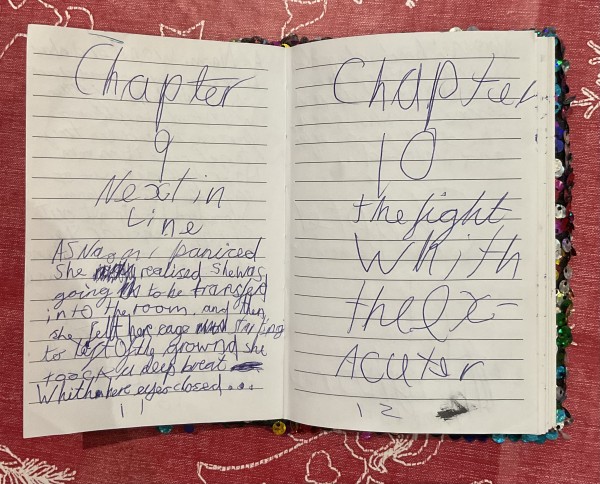 Chapter
9
Next in
Line
AS Naomi paniced
She realised she was
going to be transferd
into the room. and then
she felt here cage starting
to left of the Grownd she
toock a deep breat
Whith here eyes closed...
11
Chapter
10
the fight
Whith
the Ex-
Acuter
12